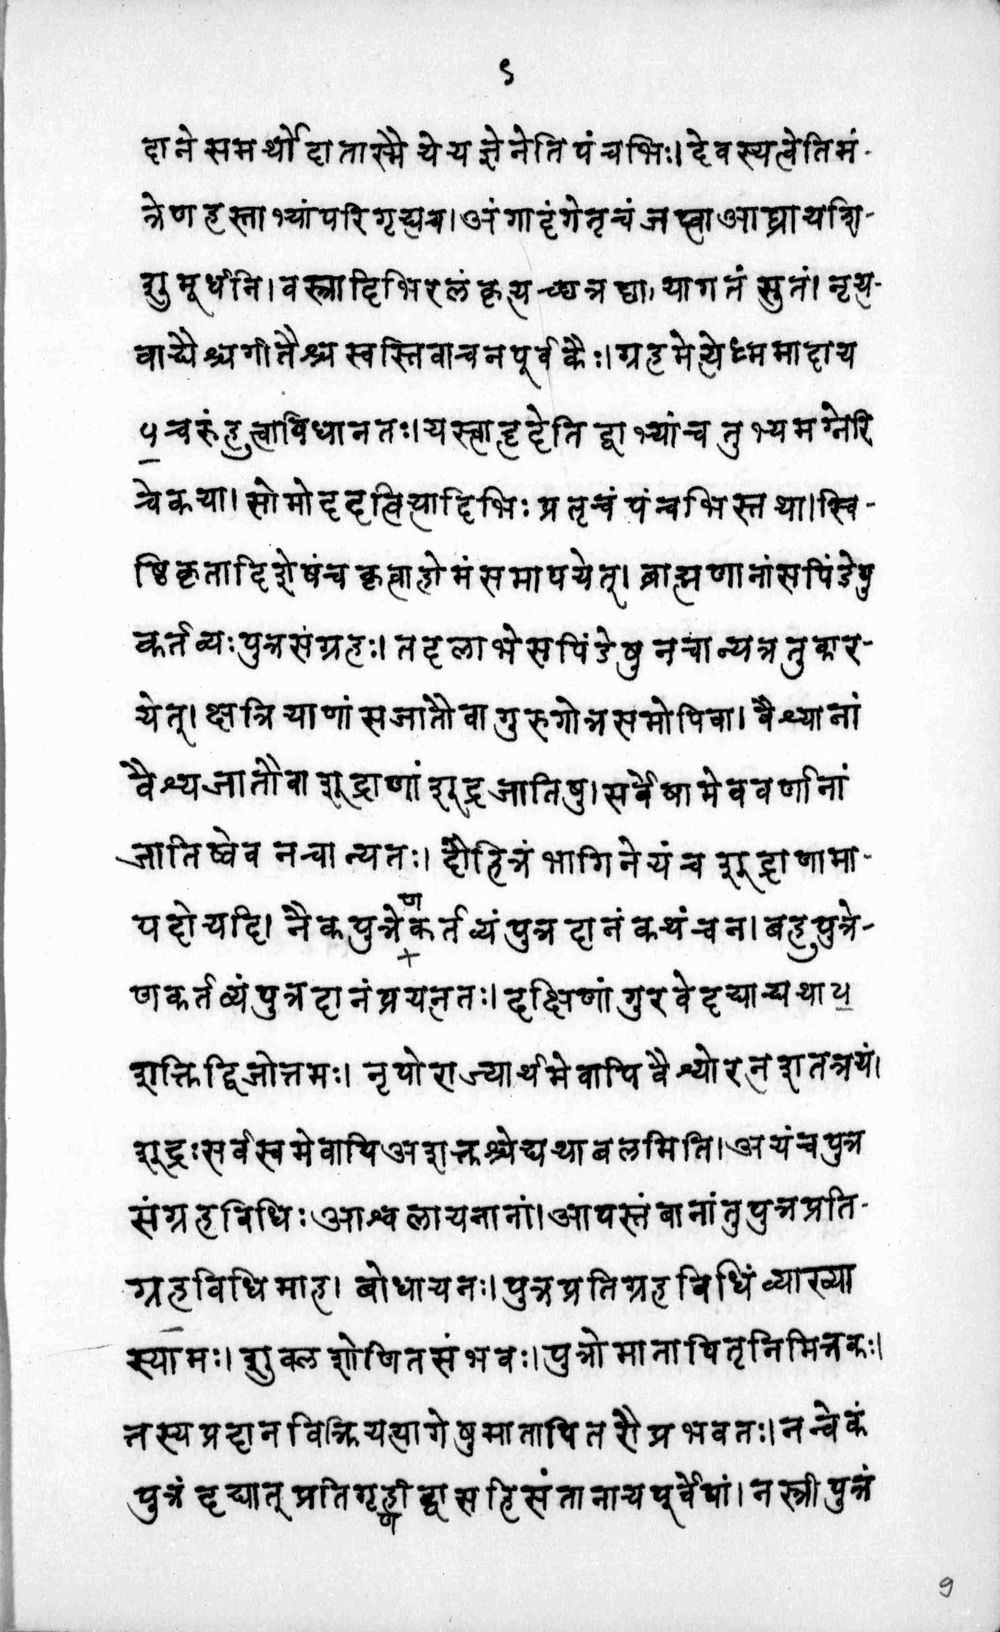 ९
दाने समर्थो दातास्मै ये यज्ञेनेति पंचभिः। देवस्यत्वेति मं-
त्रेण हस्ताभ्यां परिगृह्य च। अंगादंगेतृचं जप्त्वा आघ्राय शि-
शुमूर्धनि। वस्त्रादिभिरलंकृत्य च्छत्रछायागतं सुतं। नृत्य-
वाद्यैश्च गीतैश्च स्वस्तिवाचनपूर्वकैः। गृहमेत्येध्ममादाय
५ चरुं हुत्वा विधानतः। यस्त्वाहृदेति द्वाभ्यां च तुभ्यमग्नेरि
त्येकया। सोमोददत्वित्यादिभिः प्रतृचं पंचभिस्तथा। स्वि-
ष्टिकृतादिशेषं च कृत्वा होमं समापयेत्। ब्राह्मणानां सपिंडेषु
कर्तव्यः पुत्रसंग्रहः। तदलाभे सपिंडेषु न चान्यत्र तु कार-
येत्। क्षत्रियाणां सजातौ वा गुरुगोत्रसमोपिवा। वैश्यानां
वैश्यजातौ वा शूद्राणां शूद्रजातिषु। सर्वेषामेव वर्णानां
जातिष्वेव न चान्यतः। दौहित्रं भागिनेयं च शूद्राणामा-
यदो यदि। नैकपुत्रेणकर्तव्यं पुत्रदानं कथंचन। बहुपुत्रे-
ण कर्तव्यं पुत्रदानं प्रयत्नतः। दक्षिणां गुरवे दद्याद्यथा ५
शक्ति द्विजोत्तमः। नृपो राज्यार्थमेवापि वैश्यो रत्नशतत्रयं।
शूद्रः सर्वस्वमेवापि अशक्तश्चेद्यथाबलमिति। अयं च पुत्र
संग्रहविधिः आश्वलायनानां। आपस्तंबानां तु पुत्रप्रति-
ग्रहविधिमाह। बोधायनः। पुत्रप्रतिग्रहविधिं व्याख्या
स्यामः। शुक्लशोणितसंभवः। पुत्रो मातापितृनिमित्तकः।
तस्य प्रदानविक्रियत्यागेषु मातापितरौ प्रभवतः। नत्वेकं
पुत्रं दद्यात् प्रतिगृह्णीद्वा स हि संतानाय पूर्वेषां। न स्त्री पुत्रं
9